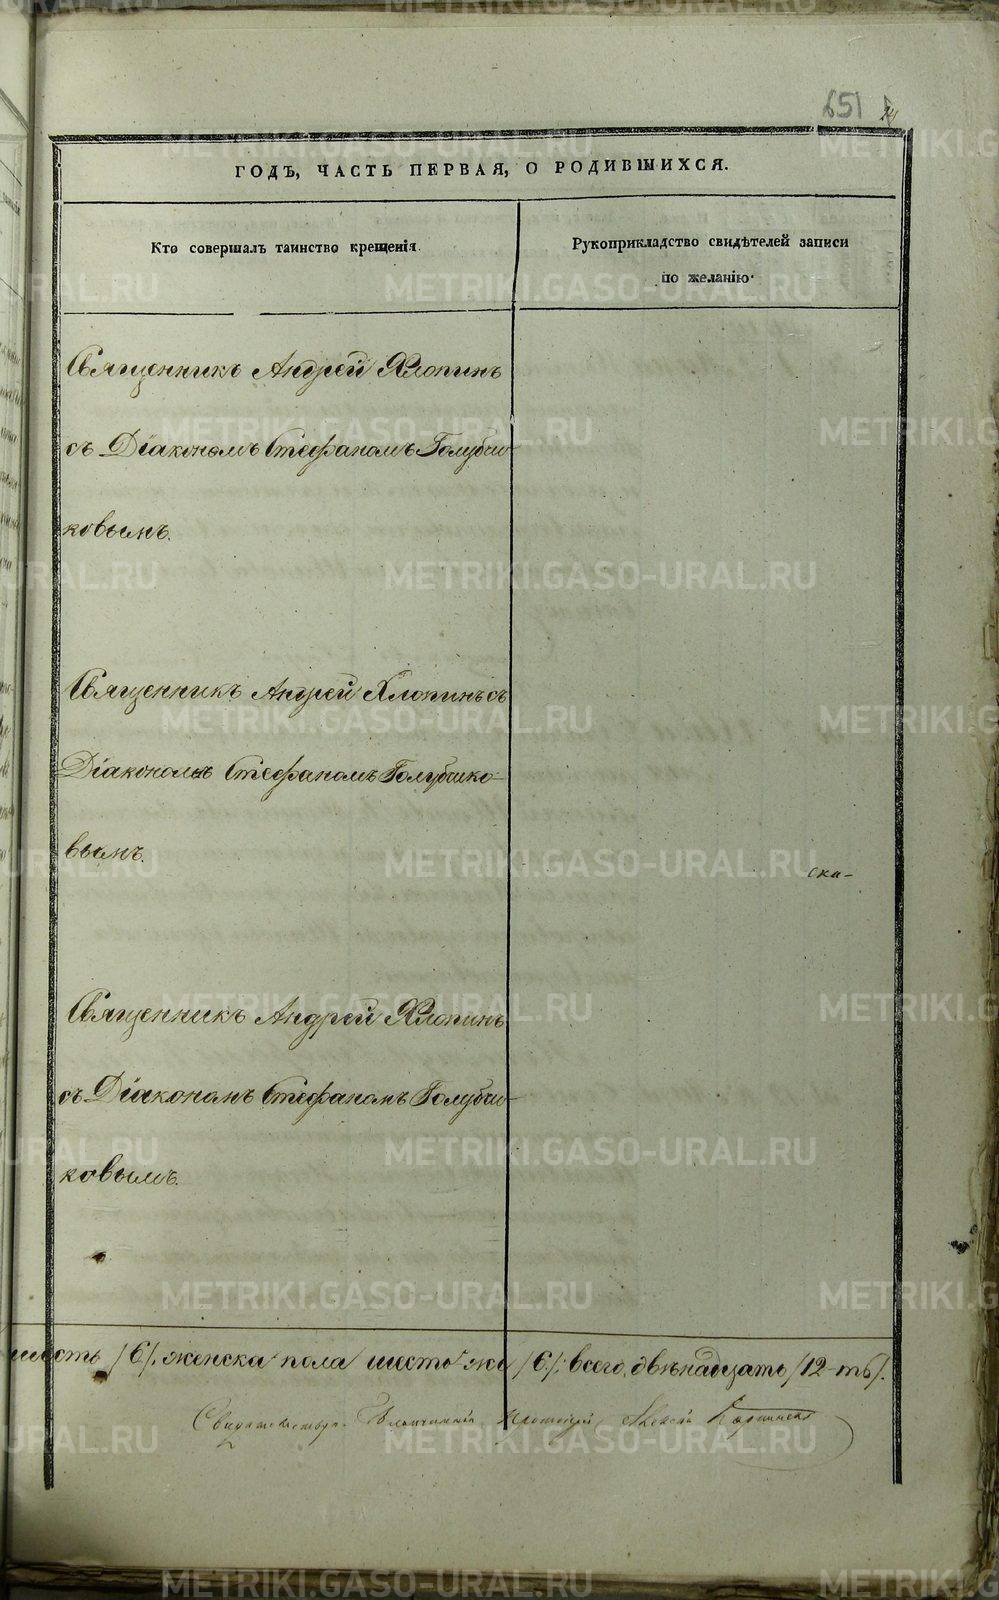 651
ГОДЪ, ЧАСТЬ ПЕРВАЯ, О РОДИВШИХСЯ.
Кто совершалъ таинство крещенія.
Рукоприкладство свидѣтелей записи
по желанію.
Священникъ Андрей Хлопинъ
съ Діакономъ Стефаномъ Голубчи-
ковымъ.
Священникъ Андрей Хлопинъ съ
Діакономъ Стефаномъ Голубчико-
вымъ.
ска-
Священникъ Андрей Хлопинъ
съ Діакономъ Стефаномъ Голубчи-
ковымъ.
шесть /6/. женска пола шесть же /6/; всего, двѣнадцать /12-ть/.
Свидѣтельств. Благочинный Протоіерей Алексій
METRIKI.GASO-URAL.RU